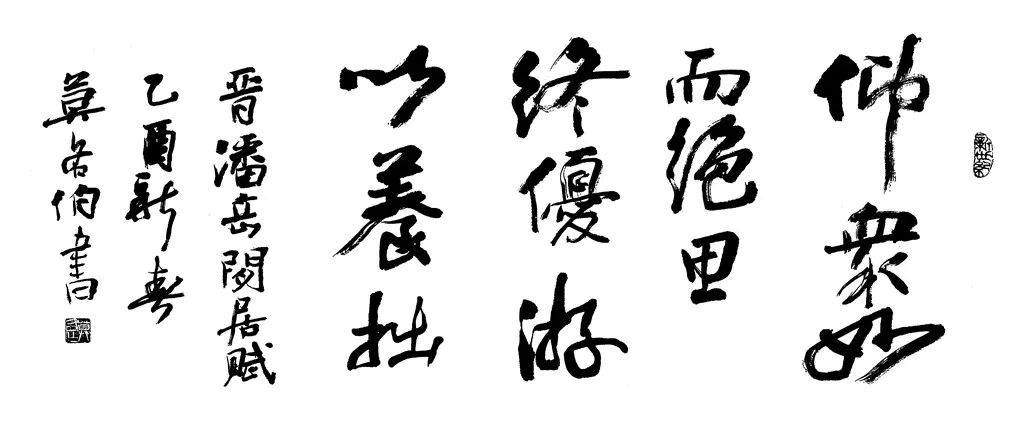 仰衆妙
而绝思
终優游
以養拙
晋潘岳閒居賦
乙酉新春
莫各伯書